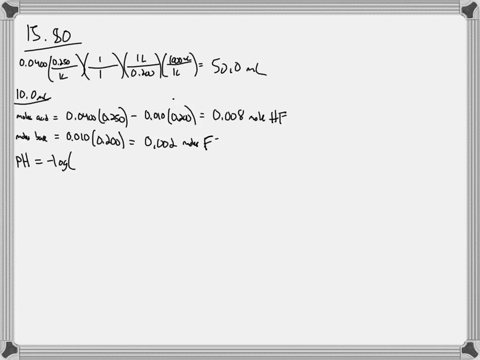 15.80
0.0400(0.250/1L)(1/1)(1L/0.200)(1000mL/1L) = 50.0 mL
10.0 mL
moles acid = 0.0400(0.250) - 0.010(0.200) = 0.008 mole HF
moles base = 0.010(0.200) = 0.002 moles F⁻
PH = -log(